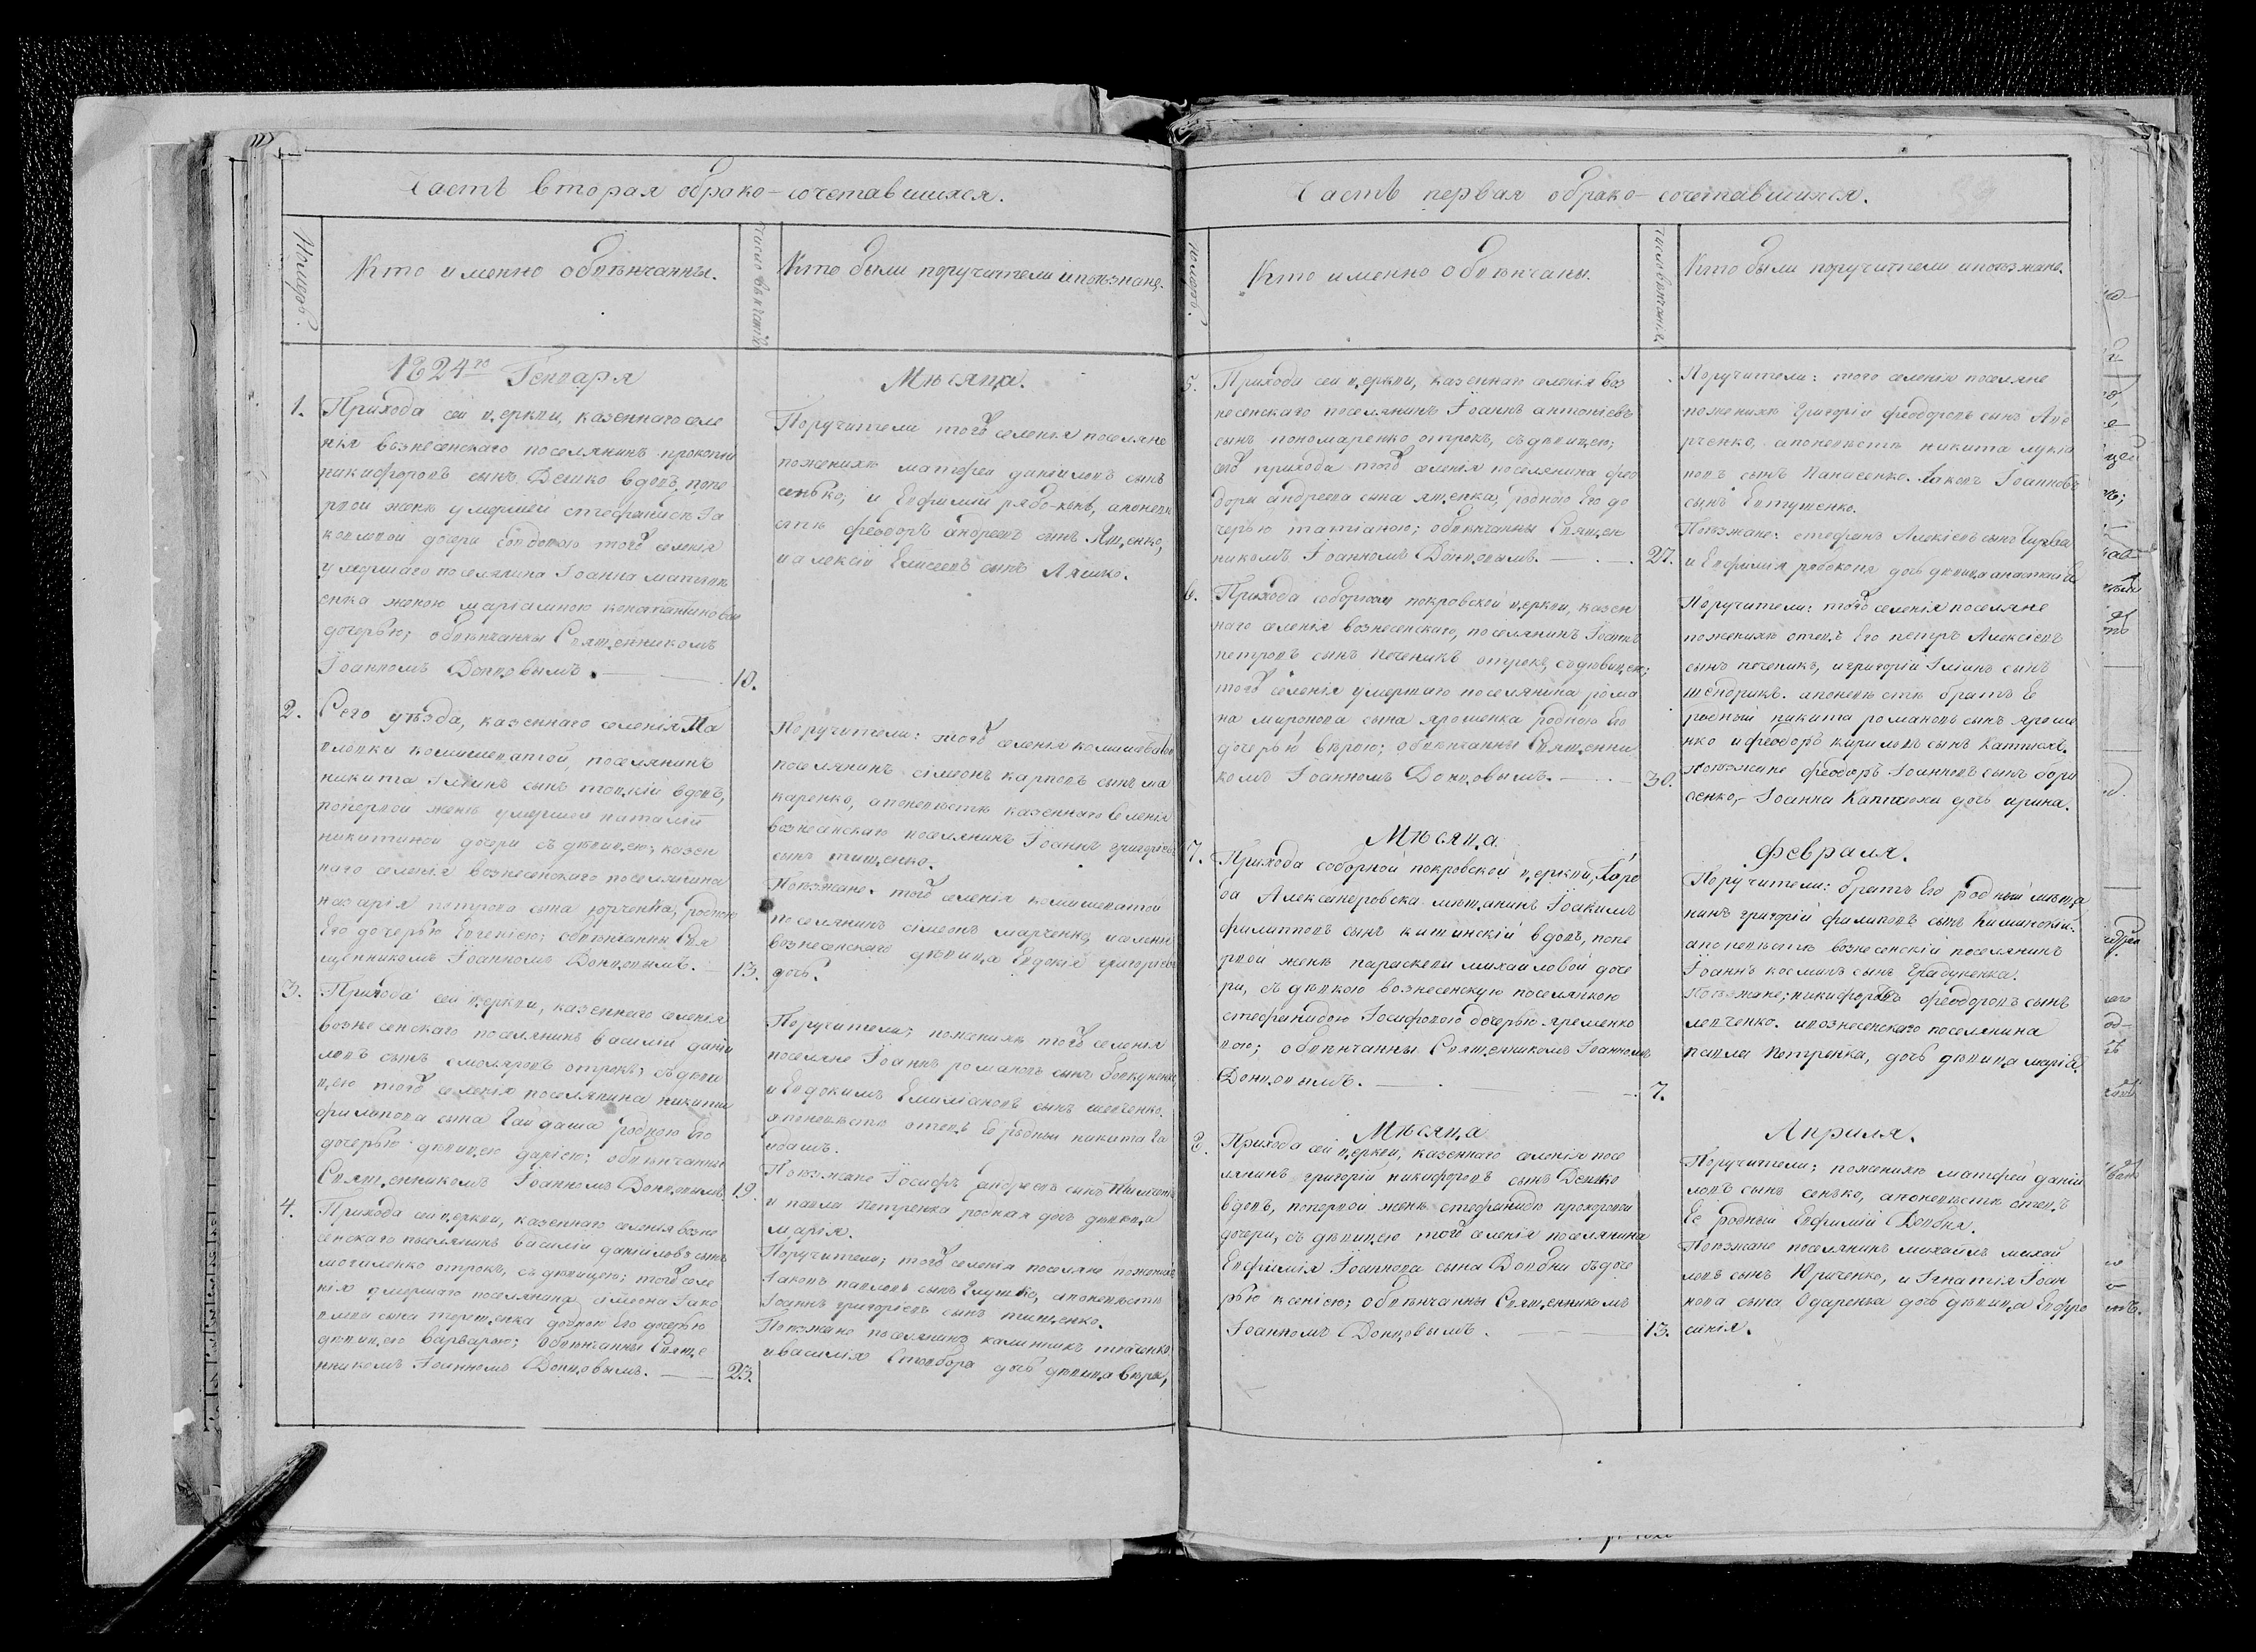 Часть вторая о брако-сочетавшихся.
Номеръ.
Кто именно обвѣнчанны.
Число вѣнчанія
Кто были поручители и поѣзжане.
1824го Генваря
Мѣсяца.
1. Прихода сей церкви, казеннаго селе
нія вознесенскаго поселянинъ прокопій
никифоровъ сынъ Дешко вдовъ, попе
рвой женѣ умершей стефанидѣ Іа
ковлевой дочери вдовою того селенія
умершаго поселянина Іоанна
енка женою маріамною константиновой
дочерью; обвѣнчанны Священникомъ
Іоанномъ Донцовымъ. 10.
Поручители того селенія поселяне
поженихѣ матфей даніиловъ сынъ
сенько, и Евфимій рябо-конь, апоневѣ
стѣ феодоръ андреевъ сынъ Ященко,
и алексій Елисеевъ сынъ Ляшко.
2. Сего уѣзда, казеннаго селенія Па
вловки поселянинъ
никита Іліинъ сынъ вдовъ,
поперьвой женѣ умершей наталій
никитиной дочери съ дѣвицею; казен
наго селенія вознесенскаго поселянина
назарія петрова сына юрченка, родною
Его дочерью Евгеніею; обвѣнчанны Свя
щенникомъ Іоанномъ Донцовымъ. 13.
Поручители: того селенія
поселянинъ сімеонъ карповъ сынъ ма
каренко, апоневѣстѣ казеннаго селенія
вознесенскаго поселянинъ Іоаннъ григоріевъ
сынъ тищенко.
Поѣзжане: того селенія
поселянинъ сімеонъ марченко, и селенія
вознесенскаго дѣвица Евдокія григоріева
дочь.
3. Прихода сей церкви, казеннаго селенія
вознесенскаго поселянинъ василій даніи
ловъ сынъ смоляровъ отрокъ; съ дѣви
цею того селенія поселянина никиты
филипова сына Гайдаша родною Его
дочерью дѣвицею даріею; обвѣнчанны
Священникомъ Іоанномъ Донцовымъ 19.
Поручители; поженихѣ того селенія
поселяне Іоаннъ романовъ сынъ
и Евдокимъ Емиліановъ сынъ шевченко.
апоневѣстѣ отецъ Ее родный никита Га
йдашъ.
Поѣзжане Іосифъ андреевъ сынъ
и павла петренка родная дочь дѣвица
марія.
4. Прихода сей церкви, казеннаго селенія возне
сенскаго поселянинъ василій даніиловъ сынъ
могиленко отрокъ, съ дѣвицею; того селе
нія умершаго поселянина сімеона Іако
влева сына терещенка родною Его дочерью
дѣвицею варварою; обвѣнчанны Священ
нникомъ Іоанномъ Донцовымъ. 23.
Поручители; того селенія поселяне поженихѣ
Іаковъ павловъ сынъ Глушко, апоневѣстѣ
Іоаннъ григоріевъ сынъ тищенко.
Поѣзжане поселянинъ калинникъ ткаченко
и василія Столбора дочь дѣвица вѣра,
Часть первая о брако-сочетавшихся.
Номеръ.
Кто именно обвѣнчаны.
Число вѣнчанія.
Кто были поручители и поѣзжане.
5. Прихода сей церкви, казеннаго селенія воз
несенскаго поселянинъ Іоаннъ антоніевъ
сынъ пономаренко отрокъ, съ дѣвицею;
сего прихода того селенія поселянина фео
дора андреева сына ященка, родною Его до
черью татіаною; обвѣнчанны Священ
никомъ Іоанномъ Донцовымъ. 27.
Поручители: того селенія поселяне
поженихѣ григорій феодоровъ сынъ
рченко, апоневѣстѣ никита лукіа
новъ сынъ Панасенко. Іаковъ Іоанновъ
сынъ Евтушенко.
Поѣзжане: стефанъ Алексіевъ сынъ
и Евфимія рябоконя дочь дѣвица анастасія
6. Прихода соборной покровской церкви, казен
наго селенія вознесенскаго, поселянинъ Іоаннъ
петровъ сынъ печеникъ отрокъ, съ дѣвицею;
того селенія умершаго поселянина рома
на миронова сына ярошенка родною Его
дочерью вѣрою; обвѣнчанны Священни
комъ Іоанномъ Донцовымъ. 30.
Поручители: того селенія поселяне
поженихѣ отецъ Его петръ Алексіевъ
сынъ печеникъ, и григорій Іліинъ сынъ
шендрикъ. апоневѣстѣ братъ Ее
родный никита романовъ сынъ яроше
нко и феодоръ кириловъ сынъ каптюхъ.
Поѣзжане феодоръ Іоанновъ сынъ бори
сенко, Іоанна Каптюха дочь ирина.
Мѣсяца
февраля.
7. Прихода соборной покровской церкви, горо
да Александровска мѣщанинъ Іоакимъ
филипповъ сынъ вдовъ, попе
рвой женѣ параскеви михайловой доче
ри, съ дѣвкою вознесенскую поселянкою
стефанидою Іосифовою дочерью яременко
вою; обвѣнчанны Священникомъ Іоанномъ
Донцовымъ. 7.
Поручители: братъ Его родный мѣща
нинъ григорій филиповъ сынъ
апоневѣстѣ вознесенскій поселянинъ
Іоаннъ косминъ сынъ
Поѣзжане; никифоръ феодоровъ сынъ
левченко. и вознесенскаго поселянина
павла петренка, дочь дѣвица марія.
Мѣсяца
Априля.
8. Прихода сей церкви, казеннаго селенія посе
лянинъ григорій никифоровъ сынъ Дешко
вдовъ, попервой женѣ стефанидѣ прохоровой
дочери, съ дѣвицею того селенія поселянина
Евфимія Іоаннова сына Довбни съ доче
рью ксеніею; обвѣнчанны Священникомъ
Іоанномъ Донцовымъ. 13.
Поручители; поженихѣ матфей даніи
ловъ сынъ сенько, апоневѣстѣ отецъ
Ее родный Евфимій Довбня.
Поѣзжане поселянинъ михайлъ михай
ловъ сынъ Юрченко, и Ігнатія Іоан
нова сына Одаренка дочь дѣвица Евфро
синія.